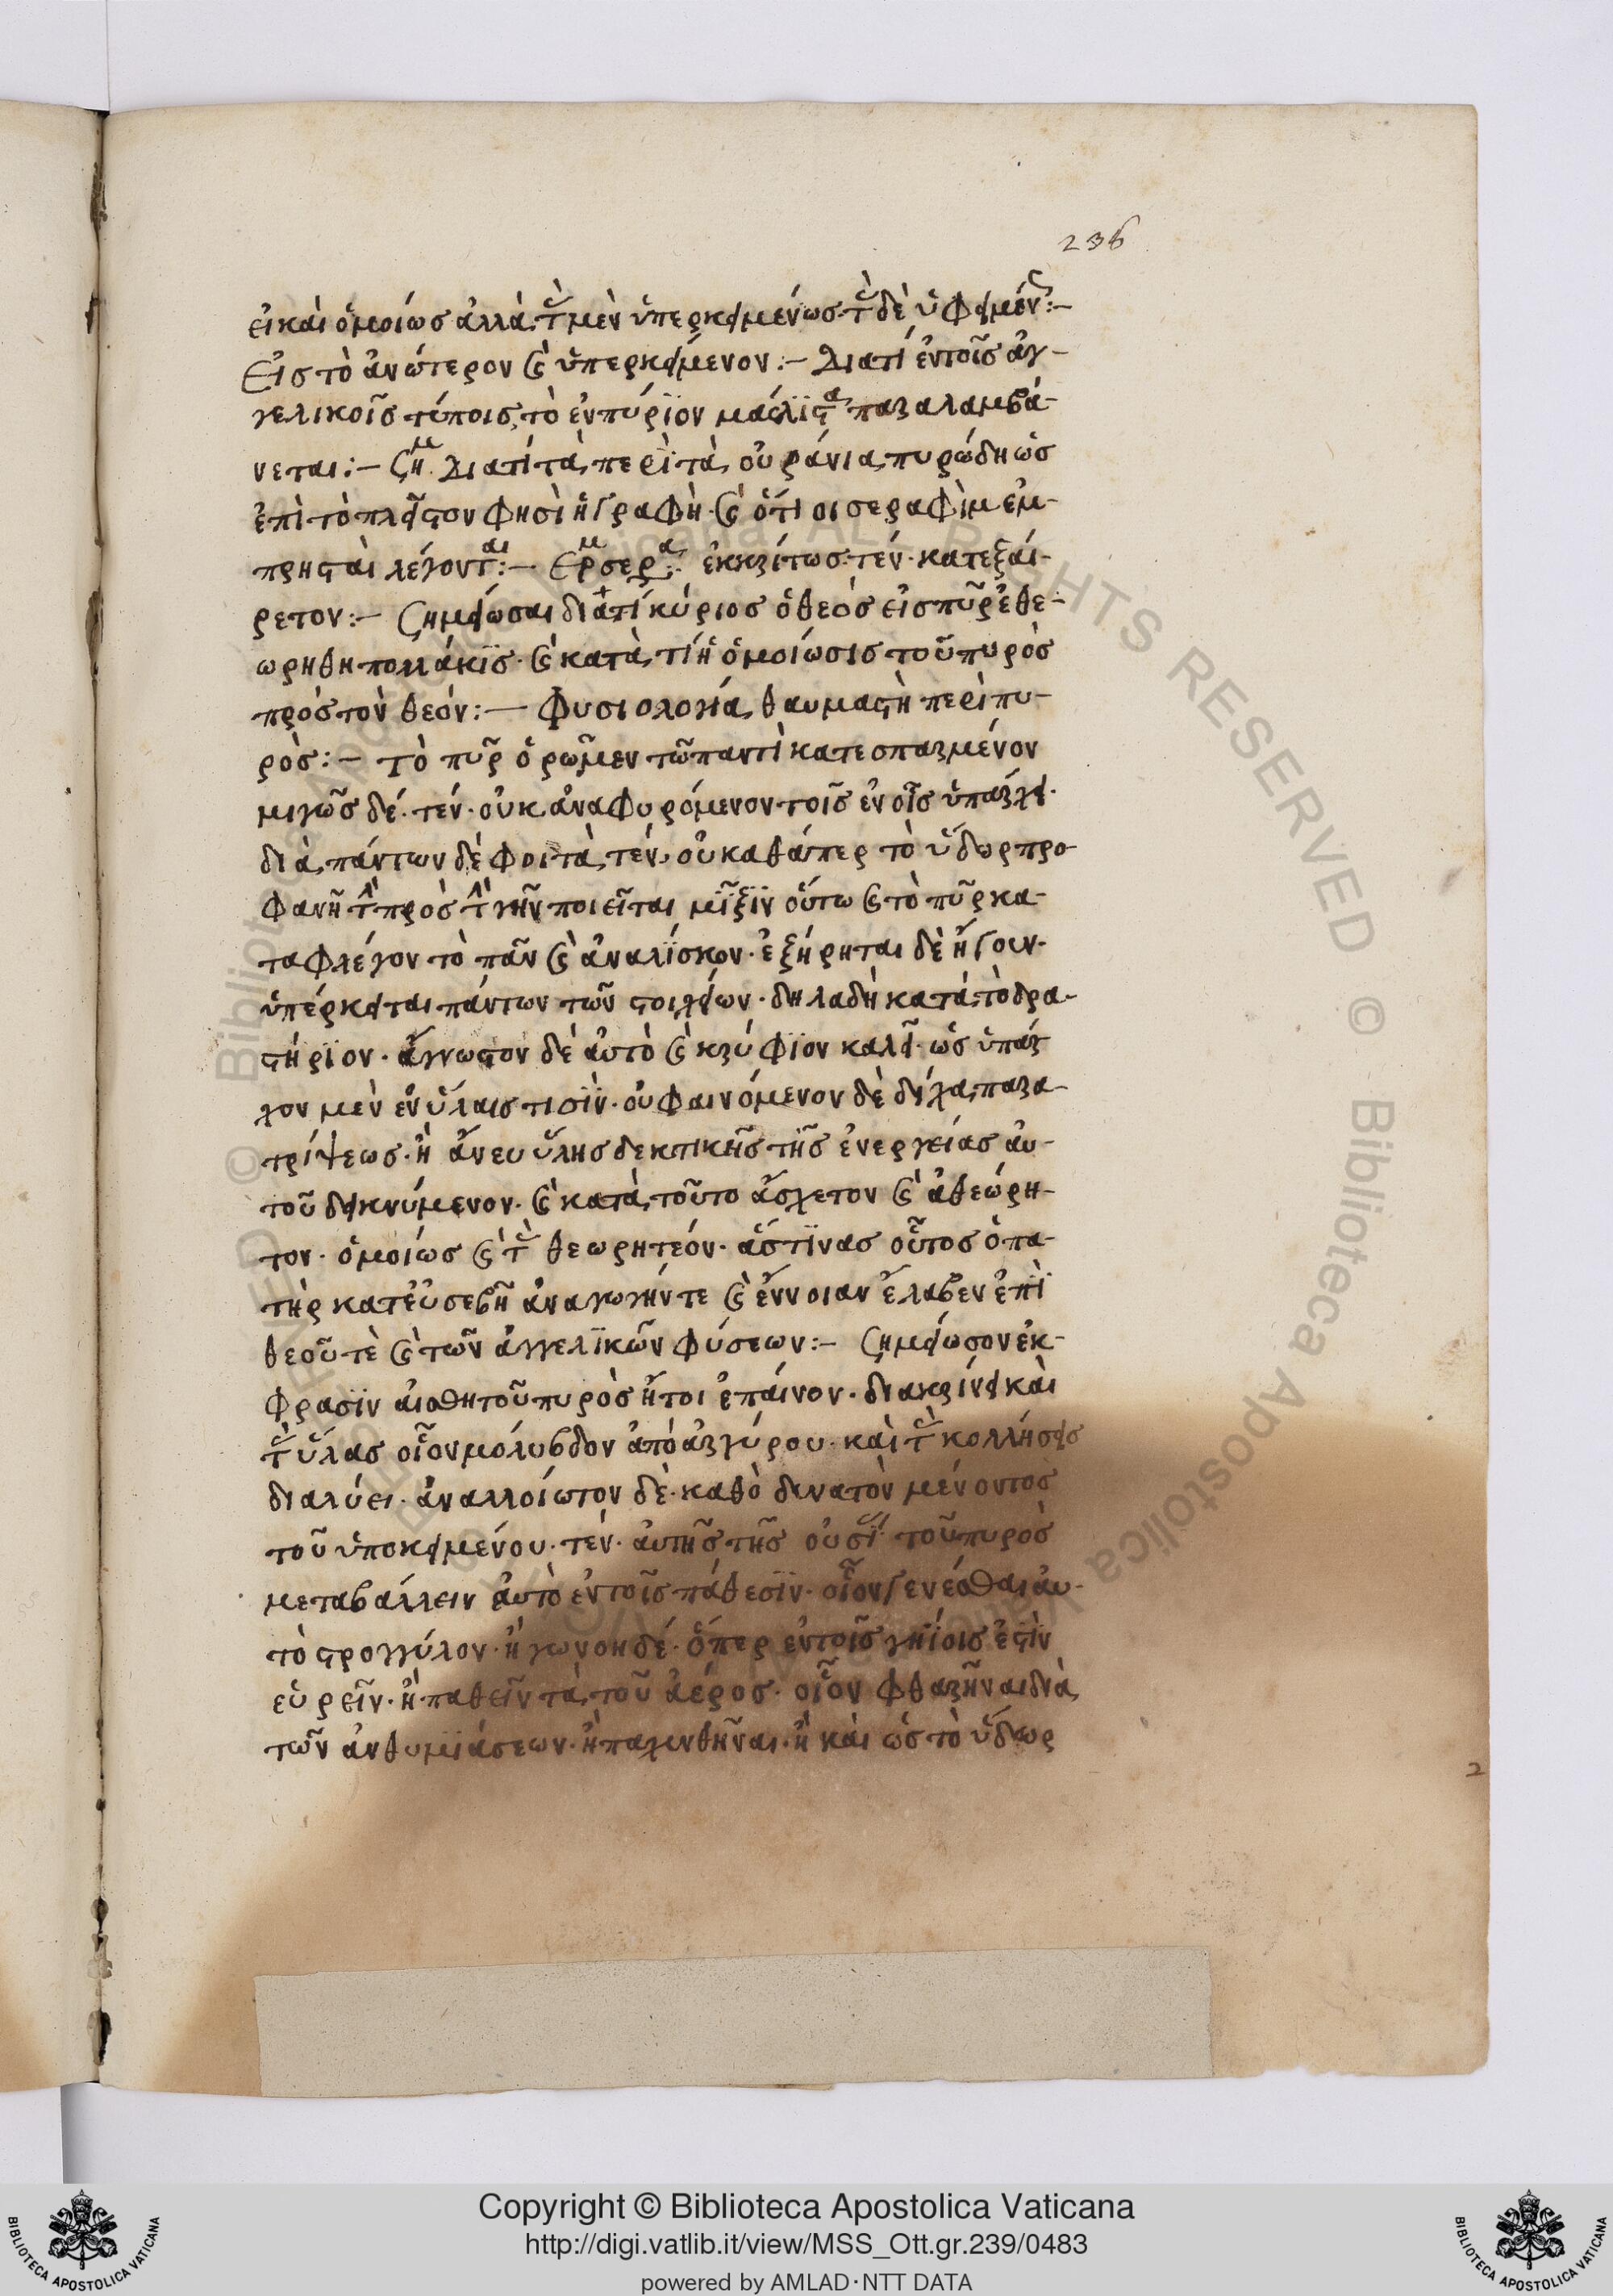 236
εἰ καὶ ὁμοίως ἀλλὰ τ̀ μὲν ὑπερκειμένως· τ̀ δὲ ὑφειμέν:–
Εἰς τὸ ἀνώτερον καὶ ὑπερκείμενον:– Διατί ἐν τοῖς ἀγ-
γελικοῖς τύποις, τὸ ἐνπύρϊον μάλϊστα παραλαμβά-
νεται:– Ση^μ. Διατί τὰ περὶ τὰ οὐράνια πυρώδη ὡς
ἐπὶ τὸ πλεῖστον φησὶ ἡ γραφὴ· καὶ ὅτι οι σεραφὶμ ἐμ-
πρησταὶ λέγονται:– Ερμ σερα: ἐκκρίτως· τέν· κατεξαί-
ρετον:– Σημείωσαι διατί κύριος ὁ θεὸς εἰς πῦρ ἐθε-
ωρήθη πολλάκϊς· καὶ κατὰ τί ἡ ὁμοίωσις τοῦ πυρὸς
πρὸς τὸν θεόν:– Φυσιολογία θαυμαστὴ περὶ πυ-
ρὸς:– Τὸ πῦρ ὁρῶμεν τῶ παντὶ κατεσπαρμένον
μιγῶς δέ· τέν· οὐκ ἀναφυρόμενον τοῖς ἐν οἷς ὑπάρχει·
διὰ πάντων δὲ φοιτὰ, τέν· οὐ καθάπερ τὸ ὕδωρ προ-
φανῆ τ̀ πρὸς τ̀ γῆν ποιεῖται μῖξϊν οὕτω καὶ τὸ πῦρ κα-
ταφλέγον τὸ πᾶν καὶ ἀναλίσκον· ἐξήρηται δὲ ἤγουν·
ὑπέρκειται πάντων τῶν στοιχείων· δηλαδὴ κατὰ τὸ δρα-
στήρϊον· ἄγνωστον δὲ αὐτὸ καὶ κρύφϊον καλεῖ· ὡς ὑπάρ
χον μὲν ἐν ὕλαις τισϊν· οὐ φαινόμενον δὲ δίχα παρα-
τρίψεως· ἢ ἄνευ ὕλης δεκτικῆς τῆς ἐνεργείας αὐ-
τοῦ δεικνύμενον· καὶ κατὰ τοῦτο ἄσχετον καὶ ἀθεώρη-
τον· ὁμοίως καὶ τ̀ θεωρητέον· ἅστϊνας οὗτος ὁ πα-
τὴρ κατ' εὐσεβῆ ἀναγωγήν τε καὶ ἔννοιαν ἔλαβεν ἐπὶ
θεοῦ τὲ καὶ τῶν ἀγγελϊκῶν φύσεων:– Σημείωσον ἐκ-
φρασϊν αἰσθητοῦ πυρὸς ἤτοι ἐπαίνον· διακρίνει καὶ
τ̀ ὕλας οἷον μόλυβδον ἀπὸ ἀργύρου· καὶ τ̀ κολλήσεις
διαλύει· ἀναλλοίωτον δὲ· καθὸ δυνατὸν μένοντος
τοῦ ὑποκειμένου· τέν· αὐτῆς τῆς οὐσϊ τοῦ πυρὸς
μεταβάλλειν αὐτὸ ἐν τοῖς πάθεσϊν· οἷον γενέσθαι αὐ-
τὸ στρογγύλον· ἢ γωνοηδέ· ὅπερ ἐν τοῖς γηΐοις ἐστὶν
εὑρεῖν· ἢ παθεῖν τὰ τοῦ ἀέρος· οἷον φθαρῆναι διὰ
τῶν ἀνθυμϊάσεων· ἢ παχυνθῆναι· ἢ καὶ ὡς τὸ ὕδωρ
2
Copyright © Biblioteca Apostolica Vaticana
http://digi.vatlib.it/view/MSS_Ott.gr.239/0483
powered by AMLAD·NTT DATA
BIBLIOTECA APOSTOLICA VATICANA
BIBLIOTECA APOSTOLICA VATICANA